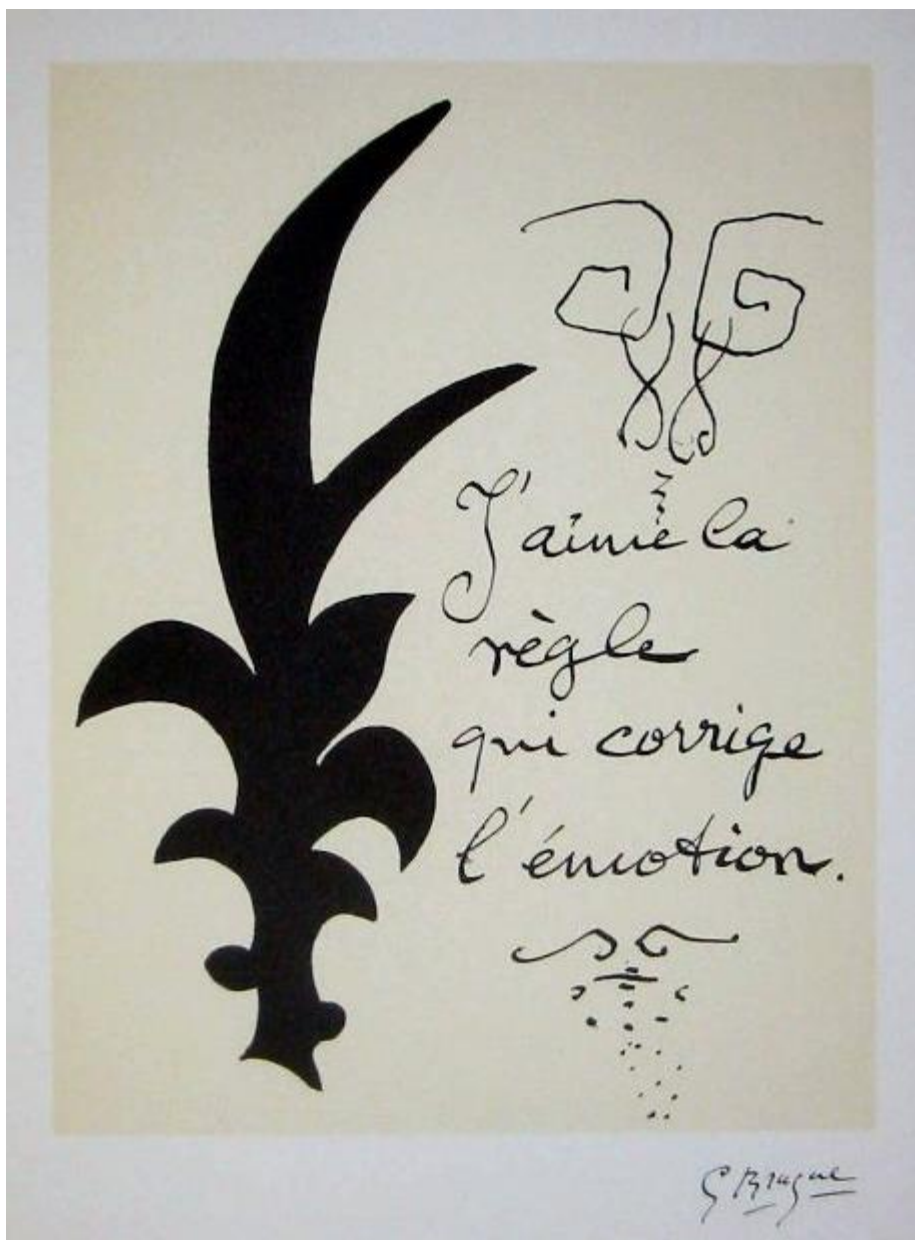 J'aime la
règle
qui corrige
l'émotion.
G Braque